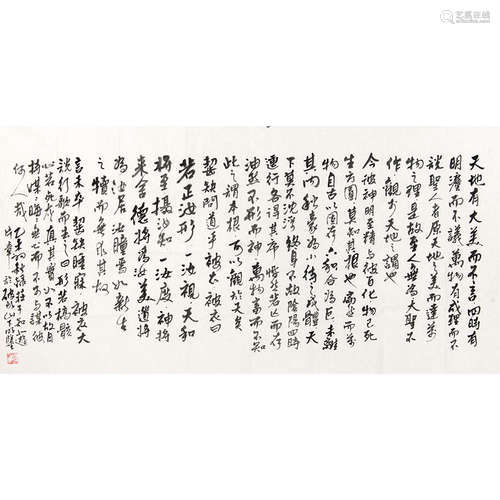 天地有大美而不言四時有
明灋而不議萬物有成理而不
說聖人者原天地之美而達萬
物之理是故至人無為大聖不
作觀於天地之謂也
今彼神明至精與彼百化物已死
生方圓莫知其根也扁然而萬
物自古以固存六合為巨未離
其內秋豪為小待之成體天
下莫不沈浮終身不故陰陽四時
運行各得其序惛然若亡而存
油然不形而神萬物畜而不知
此之謂本根可以觀於天矣
齧缺問道乎被衣被衣曰
若正汝形一汝視天和
將至攝汝知一汝度神將
來舍德將為汝美道將
為汝居汝瞳焉如新生
之犢而無求其故
言未卒齧缺睡寐被衣大
說行歌而去之曰形若槁骸
心若死灰真其實知不以故自
持媒媒晦晦無心而不可與謀彼
何人哉